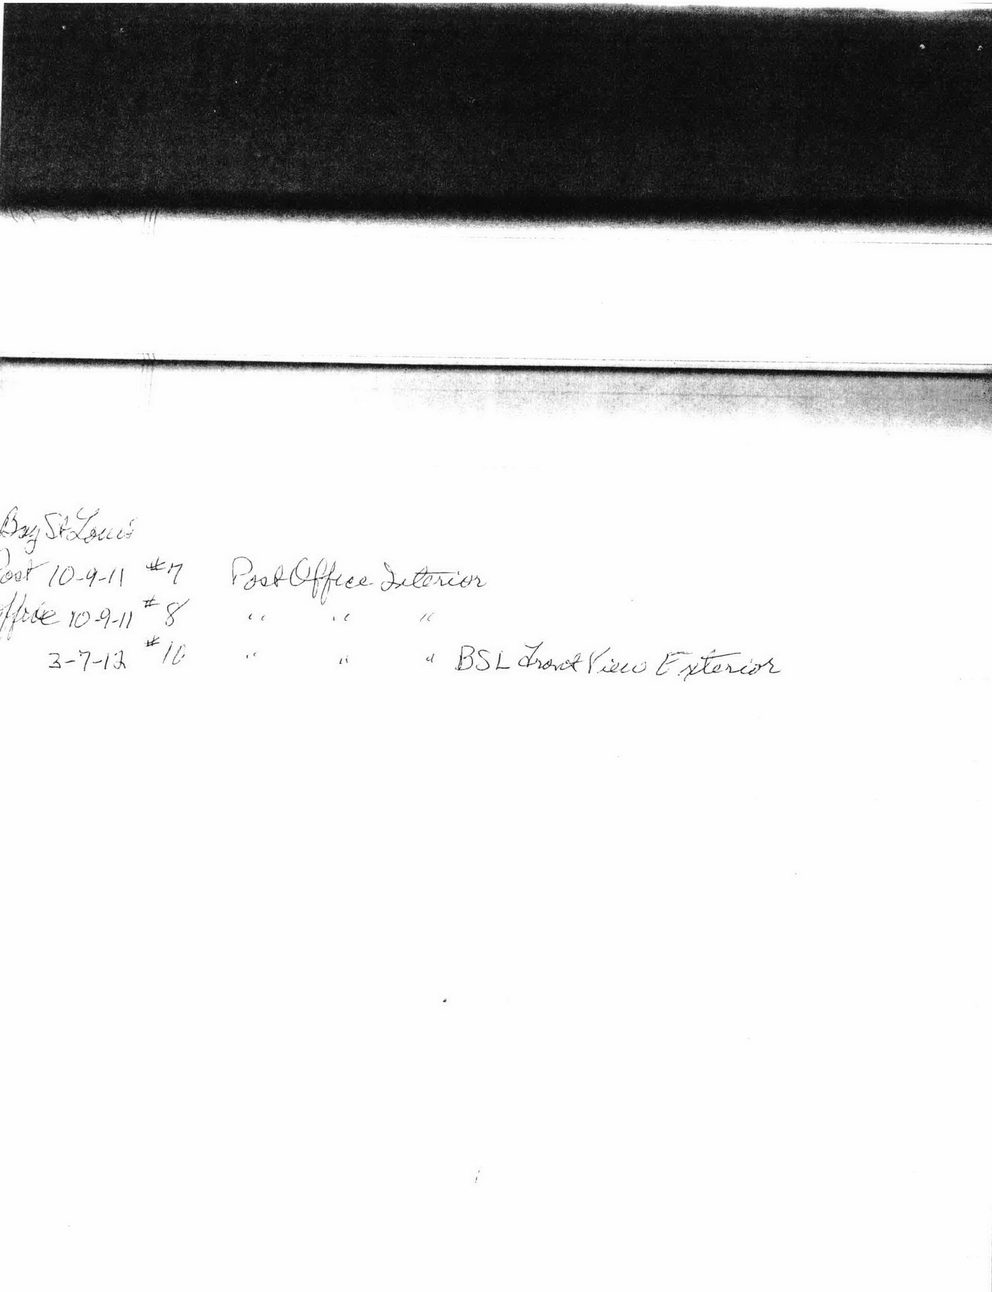 Bay St Louis
Post 10-9-11 #7 Post Office Interior
Office 10-9-11 #8 " " "
3-7-12 #10 " " " BSL Front View Exterior